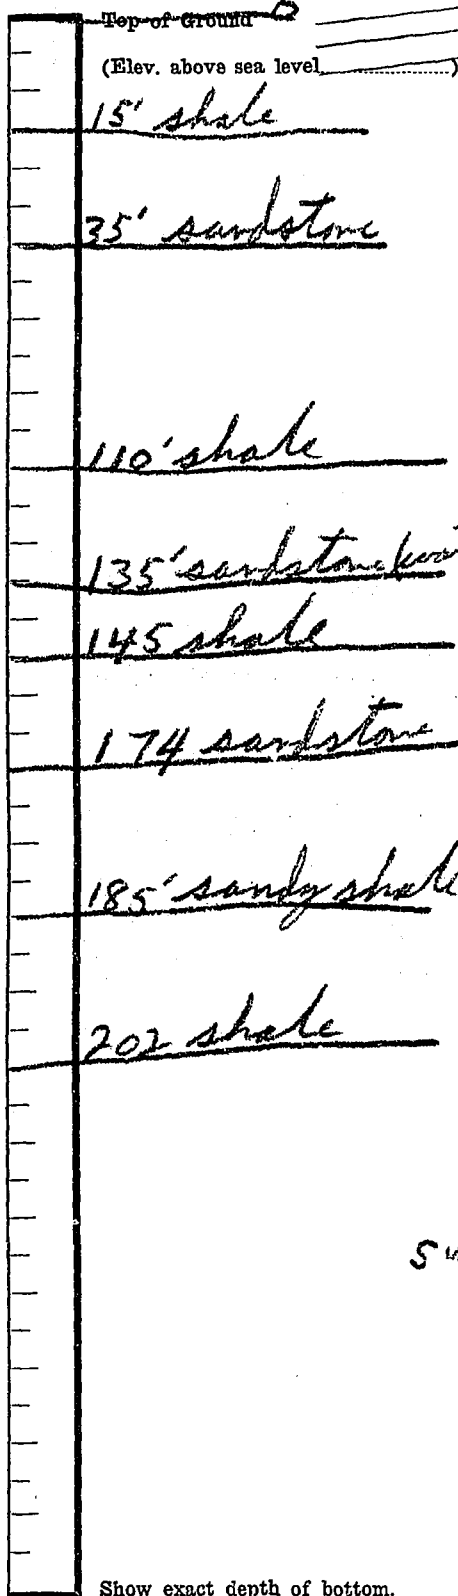 Top of Ground
(Elev. above sea level..............)
15' shale
35' sandstone
110' shale
135' sandstone
145 shale
174 sandstone
185' sandy shale
202 shale
5"
Show exact depth of bottom.